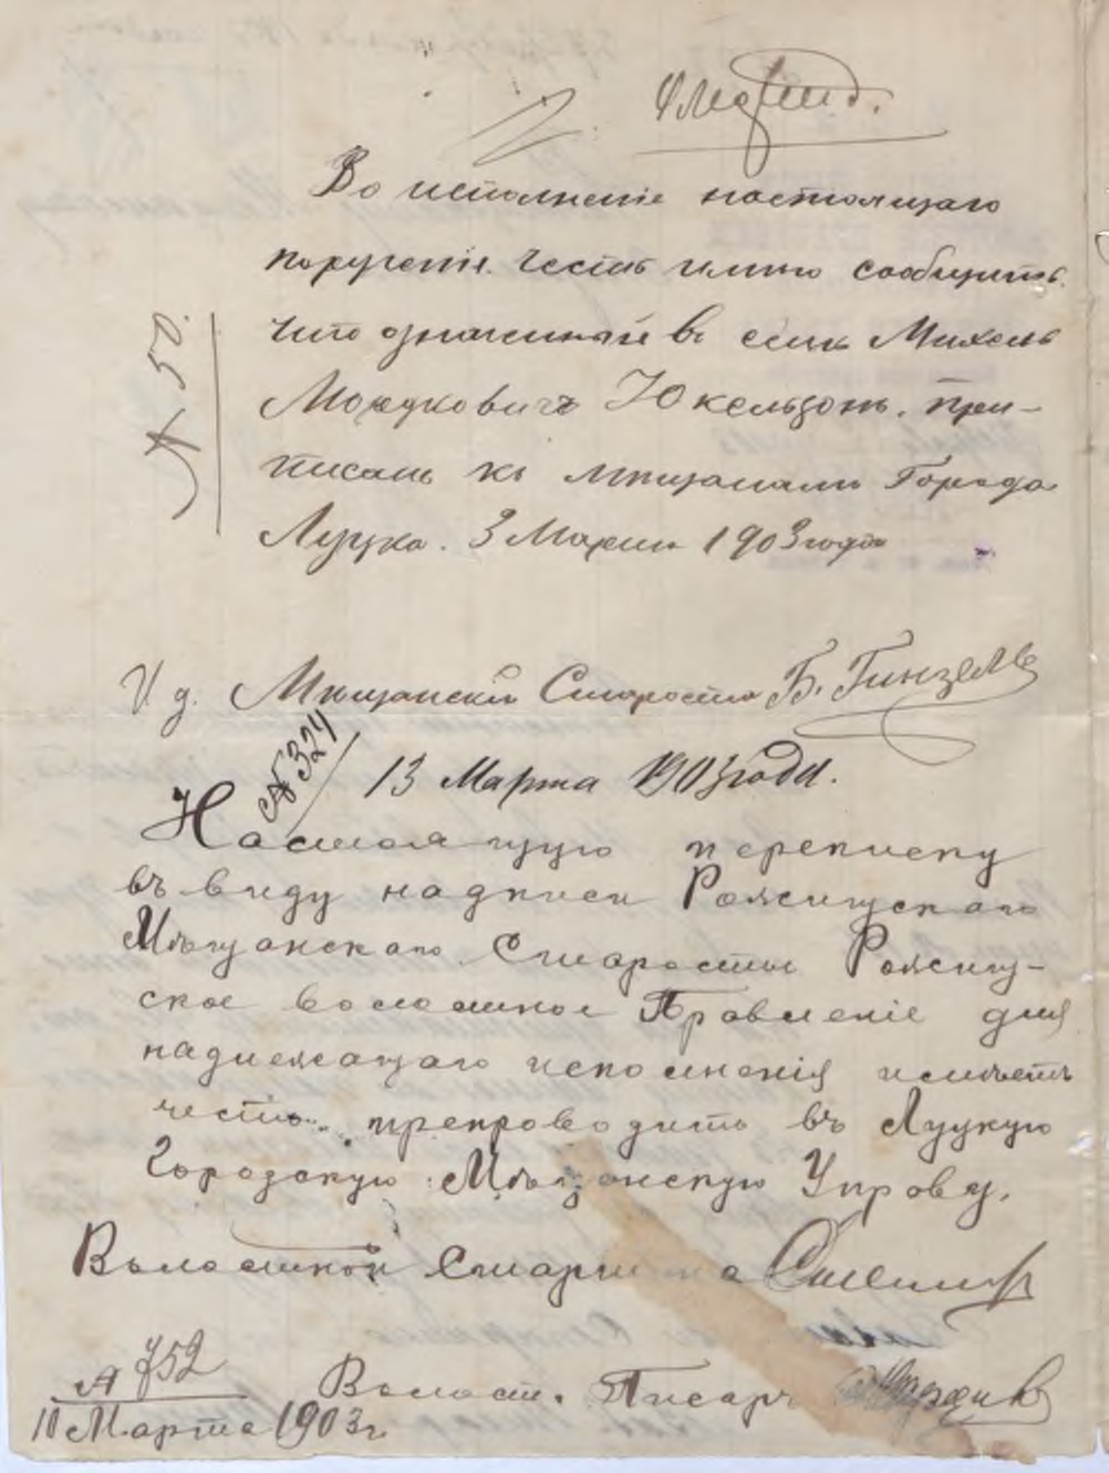 Во исполненіе настоящаго
порученія честь имѣю сообщить
что означенный въ семъ Михель
Мордковичъ Юкельзонъ, при-
писанъ къ мѣщанамъ Города
Луцка. 3 Марта 1903 года
№ 50.
И. д. Мѣщанскій Староста Б. Гинзель
№ 324
13 Марта 1903 года.
Настоящую переписку
въ виду надписи Рожищскаго
Мѣщанскаго Старосты Рожищ-
ское волостное Правленіе для
надлежащаго исполненія имѣетъ
честь препроводить въ Луцкую
Городскую Мѣщанскую Управу.
Волостной Старшина
№ 752
10 Марта 1903 г.
Волост. Писарь